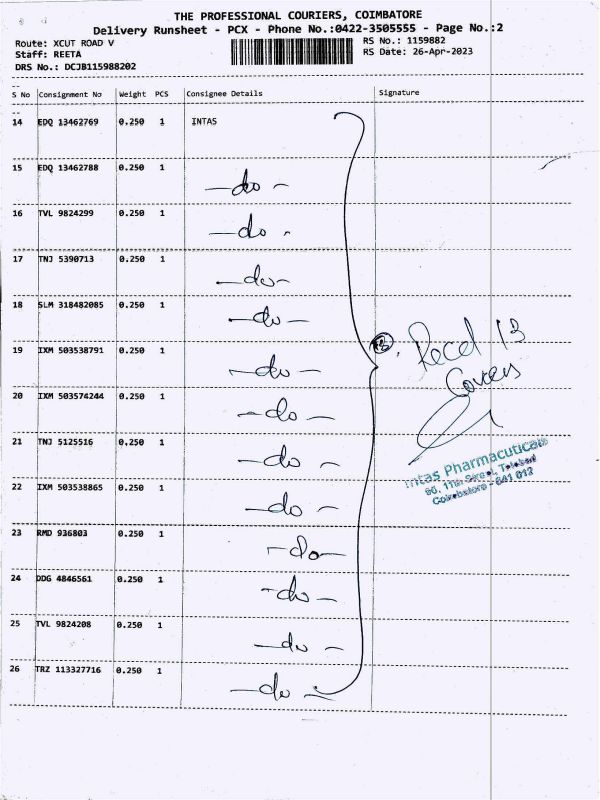 THE PROFESSIONAL COURIERS, COIMBATORE
Delivery Runsheet - PCX - Phone No.:0422-3505555 - Page No.:2
Route: XCUT ROAD V
RS No.: 1159882
Staff: REETA
RS Date: 26-Apr-2023
DRS No.: DCJB115988202
S No Consignment No Weight PCS Consignee Details Signature
14 EDQ 13462769 0.250 1 INTAS
15 EDQ 13462788 0.250 1 -do-
16 TVL 9824299 0.250 1 -do-
17 TNJ 5390713 0.250 1 -do-
18 SLM 318482085 0.250 1 -do-
19 IXM 503538791 0.250 1 -do-
20 IXM 503574244 0.250 1 -do-
21 TNJ 5125516 0.250 1 -do-
22 IXM 503538865 0.250 1 -do-
23 RMD 936803 0.250 1 -do-
24 DDG 4846561 0.250 1 -do-
25 TVL 9824208 0.250 1 -do-
26 TRZ 113327716 0.250 1 -do-
13. Recd 13
Covers
Intas Pharmaceuticals
11th Street, Tatabad
Coimbatore - 641 012